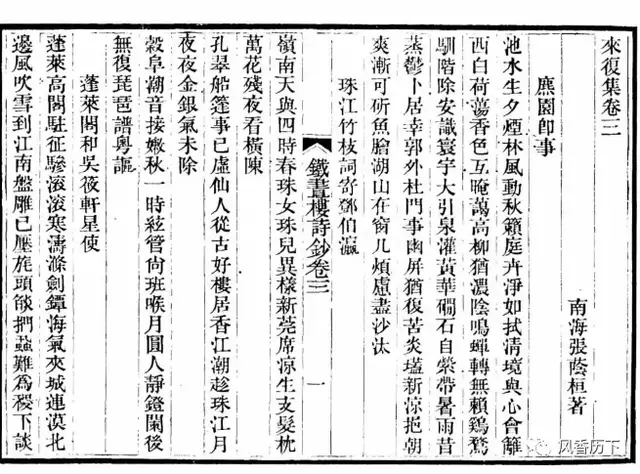 來復集卷三
南海張蔭桓著
䴥園卽事
池水生夕煙林風動秋籟庭卉淨如拭淸境與心會籬
西白荷蕩香色互晻藹高柳猶濃陰鳴蟬轉無賴鵶鶩
馴階除安識寰宇大引泉灌黃華磵石自縈帶暑雨昔
蒸鬱卜居幸郭外杜門事幽屏猶復苦炎𡏖新涼挹朝
爽漸可斫魚膾湖山在窗几煩慮盡沙汰
珠江竹枝詞寄鄧伯瀛
嶺南天與四時春珠女珠兒異樣新莞席涼生支髮枕
萬花殘夜看橫陳
孔翠船篷事已虛仙人從古好樓居香江潮趁珠江月
夜夜金銀氣未除
穀阜潮音接嫩秋一時絃管尙班喉月圓人靜鐙闌後
無復琵琶譜粵謳
蓬萊閣和吳筱軒星使
蓬萊高閣駐征驂滾滾寒濤滌劍鐔海氣夾城連漠北
邊風吹雪到江南盤雕已壓旄頭燄捫蝨難爲稷下談
鐵畫樓詩鈔卷三
一
风香历下